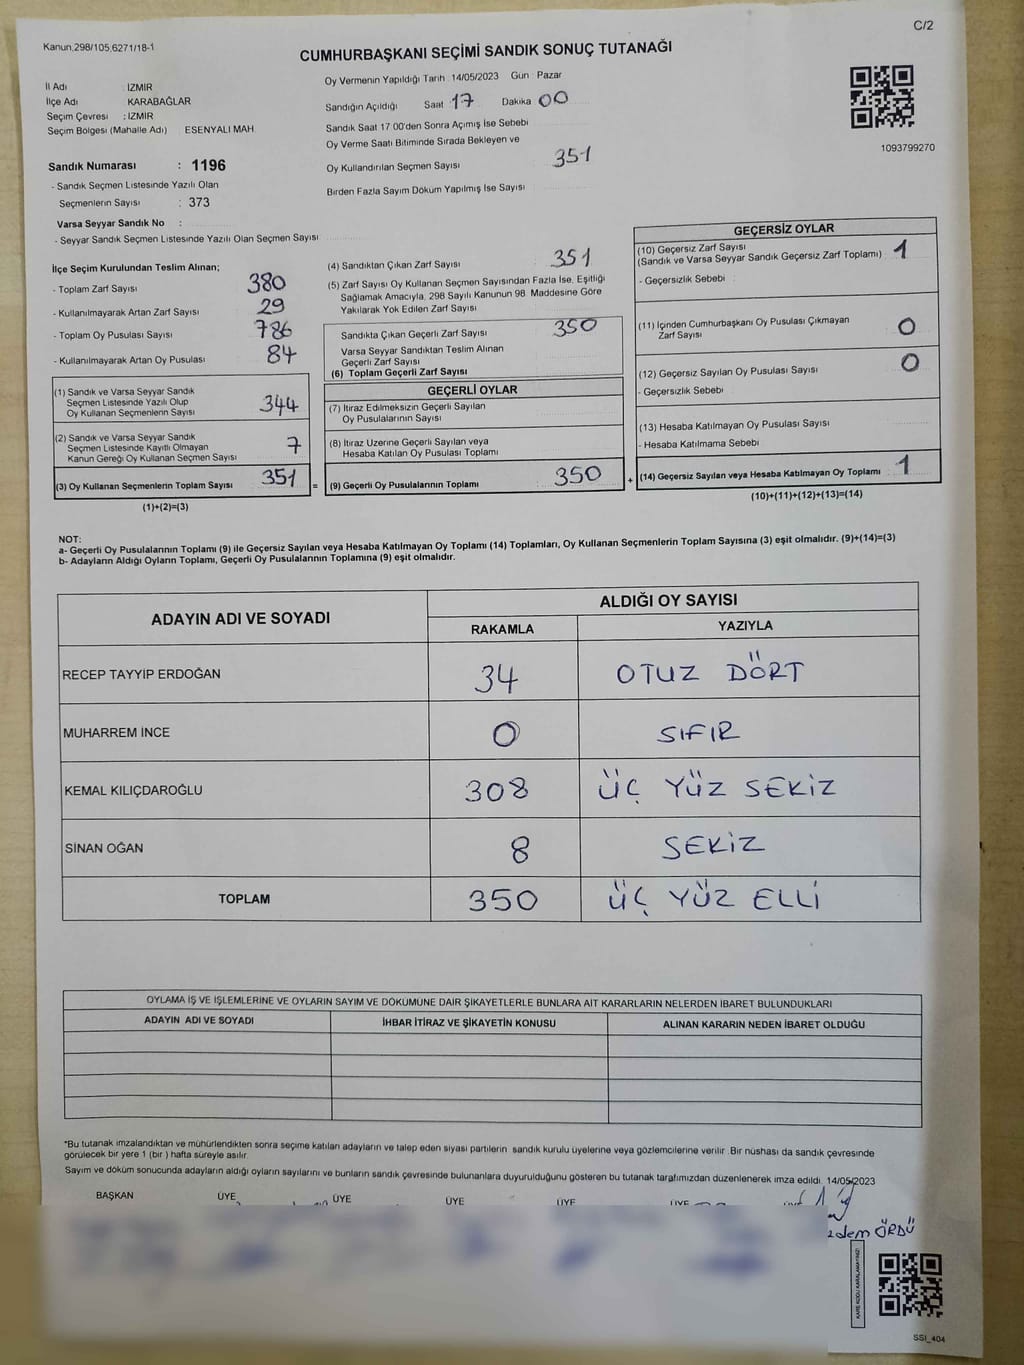 Kanun.298/105,6271/18-1
C/2
CUMHURBAŞKANI SEÇİMİ SANDIK SONUÇ TUTANAĞI
İl Adı : İZMİR
İlçe Adı KARABAĞLAR
Seçim Çevresi : İZMİR
Seçim Bölgesi (Mahalle Adı) ESENYALI MAH.
Oy Vermenin Yapıldığı Tarih : 14/05/2023 Gün : Pazar
Sandığın Açıldığı Saat 17 Dakika 00
Sandık Saat 17.00'den Sonra Açımış İse Sebebi
Oy Verme Saati Bitiminde Sırada Bekleyen ve
Oy Kullandırılan Seçmen Sayısı 351
Birden Fazla Sayım Döküm Yapılmış İse Sayısı
1093799270
Sandık Numarası : 1196
- Sandık Seçmen Listesinde Yazılı Olan
Seçmenlerin Sayısı : 373
Varsa Seyyar Sandık No :
- Seyyar Sandık Seçmen Listesinde Yazılı Olan Seçmen Sayısı
İlçe Seçim Kurulundan Teslim Alınan;
- Toplam Zarf Sayısı 380
- Kullanılmayarak Artan Zarf Sayısı 29
- Toplam Oy Pusulası Sayısı 786
- Kullanılmayarak Artan Oy Pusulası 84
(1) Sandık ve Varsa Seyyar Sandık
Seçmen Listesinde Yazılı Olup
Oy Kullanan Seçmenlerin Sayısı 344
(2) Sandık ve Varsa Seyyar Sandık
Seçmen Listesinde Kayıtlı Olmayan
Kanun Gereği Oy Kullanan Seçmen Sayısı 7
(3) Oy Kullanan Seçmenlerin Toplam Sayısı 351 =
(1)+(2)=(3)
(4) Sandıktan Çıkan Zarf Sayısı 351
(5) Zarf Sayısı Oy Kullanan Seçmen Sayısından Fazla İse, Eşitliği
Sağlamak Amacıyla, 298 Sayılı Kanunun 98. Maddesine Göre
Yakılarak Yok Edilen Zarf Sayısı
Sandıkta Çıkan Geçerli Zarf Sayısı 350
Varsa Seyyar Sandıktan Teslim Alınan
Geçerli Zarf Sayısı
(6) Toplam Geçerli Zarf Sayısı
GEÇERLİ OYLAR
(7) İtiraz Edilmeksizin Geçerli Sayılan
Oy Pusulalarının Sayısı
(8) İtiraz Üzerine Geçerli Sayılan veya
Hesaba Katılan Oy Pusulası Toplamı
(9) Geçerli Oy Pusulalarının Toplamı 350 +
GEÇERSİZ OYLAR
(10) Geçersiz Zarf Sayısı
(Sandık ve Varsa Seyyar Sandık Geçersiz Zarf Toplamı) 1
- Geçersizlik Sebebi :
(11) İçinden Cumhurbaşkanı Oy Pusulası Çıkmayan
Zarf Sayısı 0
(12) Geçersiz Sayılan Oy Pusulası Sayısı 0
- Geçersizlik Sebebi
(13) Hesaba Katılmayan Oy Pusulası Sayısı
- Hesaba Katılmama Sebebi
(14) Geçersiz Sayılan veya Hesaba Katılmayan Oy Toplamı 1
(10)+(11)+(12)+(13)=(14)
NOT:
a- Geçerli Oy Pusulalarının Toplamı (9) ile Geçersiz Sayılan veya Hesaba Katılmayan Oy Toplamı (14) Toplamları, Oy Kullanan Seçmenlerin Toplam Sayısına (3) eşit olmalıdır. (9)+(14)=(3)
b- Adayların Aldığı Oyların Toplamı, Geçerli Oy Pusulalarının Toplamına (9) eşit olmalıdır.
ADAYIN ADI VE SOYADI ALDIĞI OY SAYISI
RAKAMLA YAZIYLA
RECEP TAYYİP ERDOĞAN 34 OTUZ DÖRT
MUHARREM İNCE 0 SIFIR
KEMAL KILIÇDAROĞLU 308 ÜÇ YÜZ SEKİZ
SİNAN OĞAN 8 SEKİZ
TOPLAM 350 ÜÇ YÜZ ELLİ
OYLAMA İŞ VE İŞLEMLERİNE VE OYLARIN SAYIM VE DÖKÜMÜNE DAİR ŞİKAYETLERLE BUNLARA AİT KARARLARIN NELERDEN İBARET BULUNDUKLARI
ADAYIN ADI VE SOYADI İHBAR İTİRAZ VE ŞİKAYETİN KONUSU ALINAN KARARIN NEDEN İBARET OLDUĞU
*Bu tutanak imzalandıktan ve mühürlendikten sonra seçime katılan adayların ve talep eden siyasi partilerin sandık kurulu üyelerine veya gözlemcilerine verilir. Bir nüshası da sandık çevresinde
görülecek bir yere 1 (bir ) hafta süreyle asılır.
Sayım ve döküm sonucunda adayların aldığı oyların sayılarını ve bunların sandık çevresinde bulunanlara duyurulduğunu gösteren bu tutanak tarafımızdan düzenlenerek imza edildi. 14/05/2023
BAŞKAN ÜYE ÜYE ÜYE ÜYE ÜYE
ÖRDÜ
KARE KODU KARALAMAYINIZ!
SSİ_404